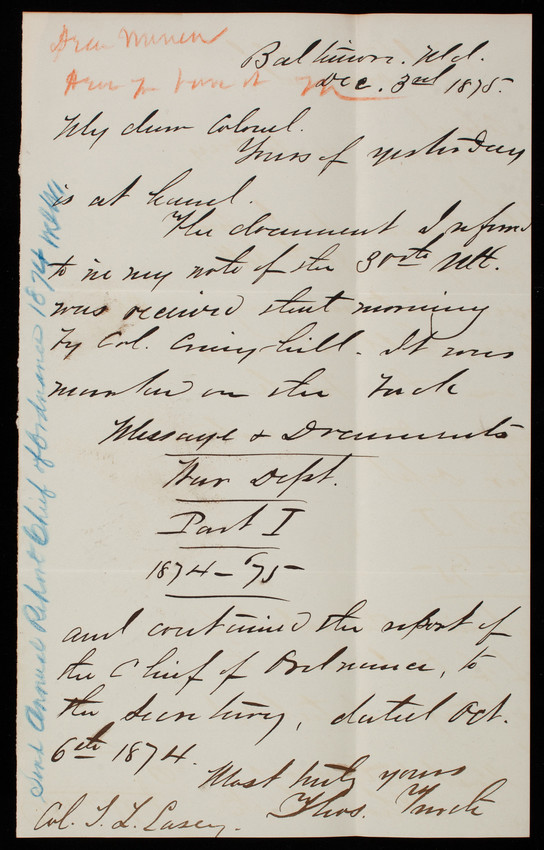 Baltimore. Md.
Dec. 3rd 1875.
My dear Colonel.
Yours of yesterday
is at hand.
The document I referred
to in my note of the 30th Ult.
was received that morning
by Col. Craighill. It was
marked on the back
Message & Documents
War Dept.
Part I
1874-'75
and contained the report of
the Chief of Ordnance, to
the Secretary, dated Oct.
6th 1874.
Most truly yours
Thos.
Col. T. L. Casey.
Send Annual Report Chief of Ordnance 1874